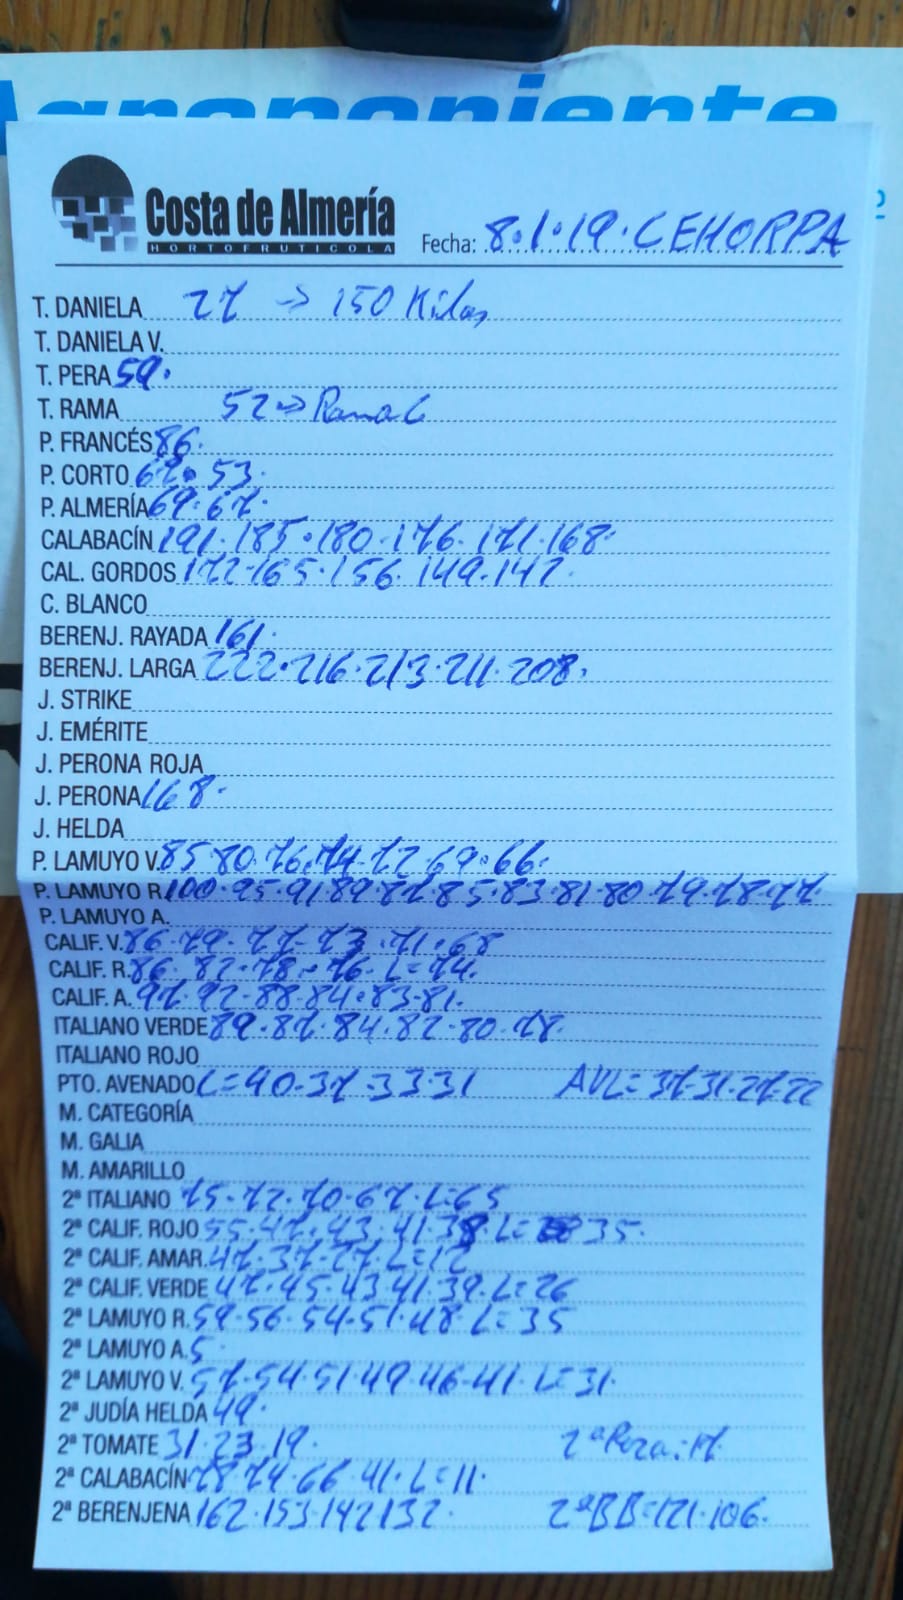 Agroponiente
Costa de Almería
HORTOFRUTICOLA
Fecha: 8.1.19. CEHORPA
T. DANIELA 27 -> 150 Kilos
T. DANIELA V.
T. PERA 59.
T. RAMA 52 -> Rama L
P. FRANCÉS 86.
P. CORTO 67. 53.
P. ALMERÍA 69.67.
CALABACÍN 191.185.180.176.171.168.
CAL. GORDOS 172.165.156.149.147
C. BLANCO
BERENJ. RAYADA 161.
BERENJ. LARGA 222.216.213.211.208.
J. STRIKE
J. EMÉRITE
J. PERONA ROJA
J. PERONA 168.
J. HELDA
P. LAMUYO V. 85.80.76.74.72.69.66.
P. LAMUYO R. 100.95.91.89.87.85.83.81.80.79.78.77
P. LAMUYO A.
CALIF. V. 86.79.77.73.71.68
CALIF. R. 86.82.78.76.L=74.
CALIF. A. 97.92.88.84.83.81.
ITALIANO VERDE 89.87.84.82.80.78.
ITALIANO ROJO
PTO. AVENADO L=40.37.33.31 AVL=37.31.27.22
M. CATEGORÍA
M. GALIA
M. AMARILLO
2ª ITALIANO 75.72.70.67.L=65
2ª CALIF. ROJO 55.47.43.41.38.L= 35.
2ª CALIF. AMAR. 47.37.27.L=12
2ª CALIF. VERDE 47.45.43.41.39.L=26
2ª LAMUYO R. 59.56.54.51.48.L=35
2ª LAMUYO A. 5.
2ª LAMUYO V. 57.54.51.49.46.41.L=31.
2ª JUDÍA HELDA 49.
2ª TOMATE 31.23.19. 2ª Pera:17.
2ª CALABACÍN 78.74.66.41.L=11.
2ª BERENJENA 162.153.142.132. 2ªBB=121.106.